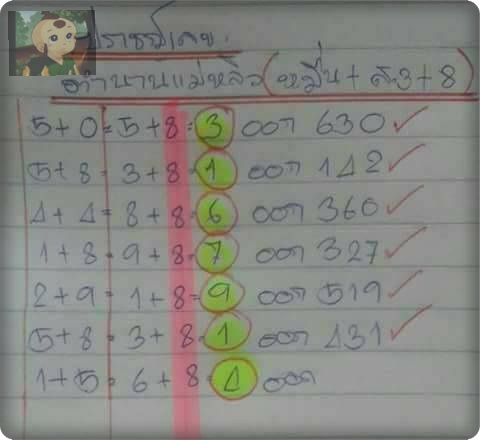 ปราชญ์เลข.
ตำนานแม่หลิว(หมื่น+ส.3+8)
5+0=5+8=3 ออก 630 ✓
5+8=3+8=1 ออก 142 ✓
4+4=8+8=6 ออก 360 ✓
1+8=9+8=7 ออก 327 ✓
2+9=1+8=9 ออก 519 ✓
5+8=3+8=1 ออก 431 ✓
1+5=6+8=4 ออก